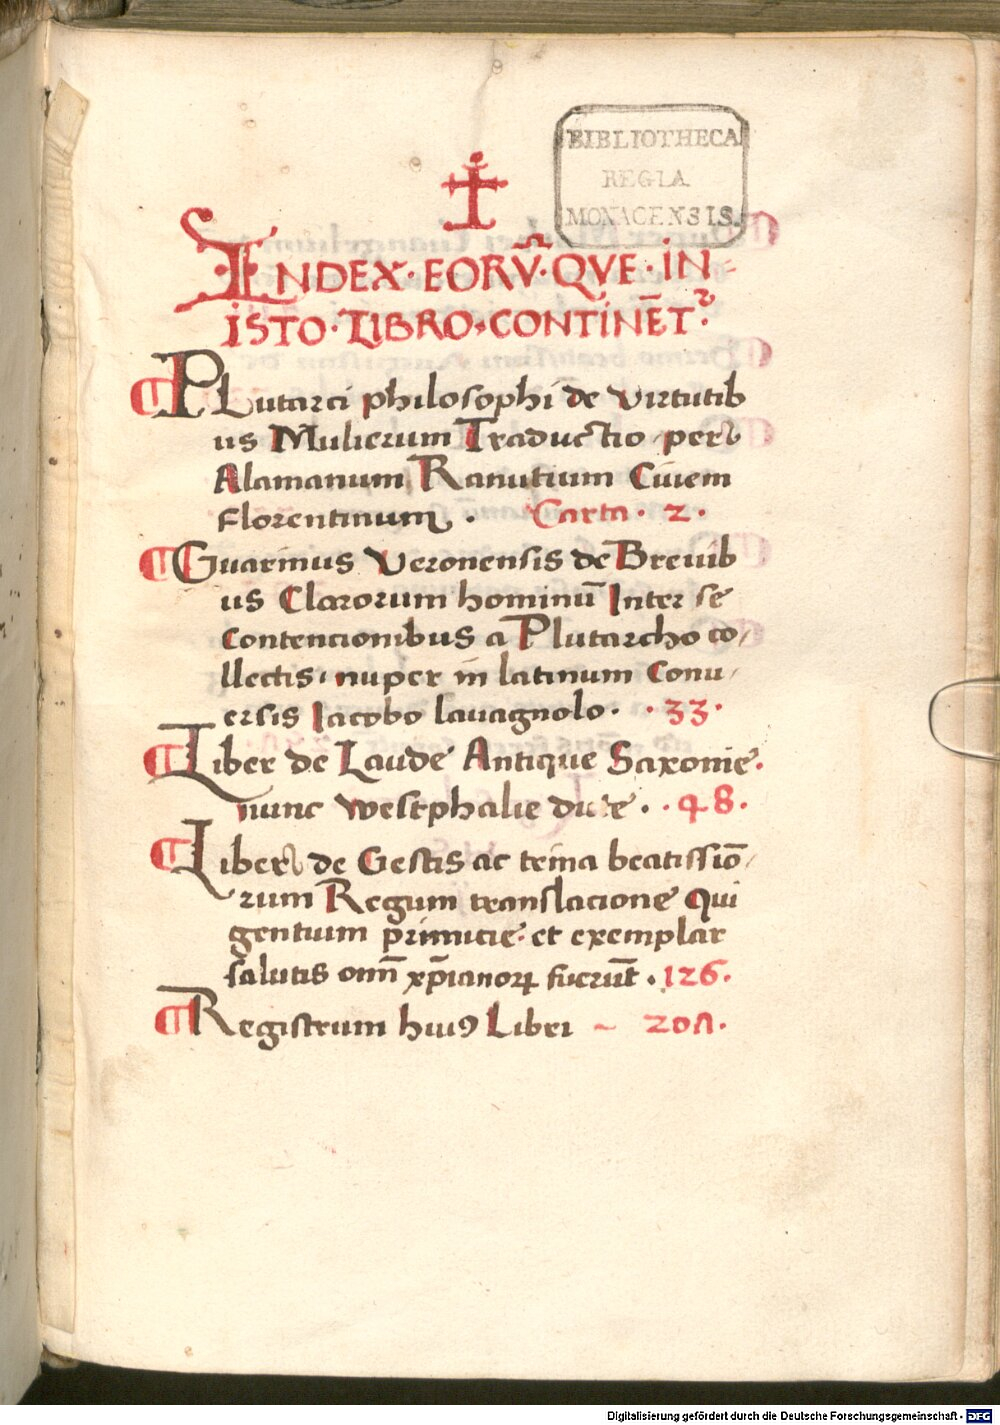 BIBLIOTHECA
REGIA
MONACENSIS.
INDEX·EORV̄·QVE·IN-
ISTO·LIBRO·CONTINĒT²
PLutarci philosophi de virtutib
us Mulierum Traductio per
Alamanum Ranutium Ciuem
florentinum. Carta·2·
Guarinus Veronensis de Breuib
us Clarorum hominū Inter se
Contencionibus a Plutarcho co/
llectis nuper in latinum Conu/
ersis Iacobo lauagnolo··33·
Liber de Laude Antique Saxonie·
nunc westphalie dicte··48·
Liber de Gestis ac trina beatissiō/
rum Regum translacione Qui
gentium primicie· et exemplar
salutis om̄ xp̄ianoꝝ fuerūt·126·
Registrum huiꝯ Libri ~ 20Λ·
Digitalisierung gefördert durch die Deutsche Forschungsgemeinschaft - DFG